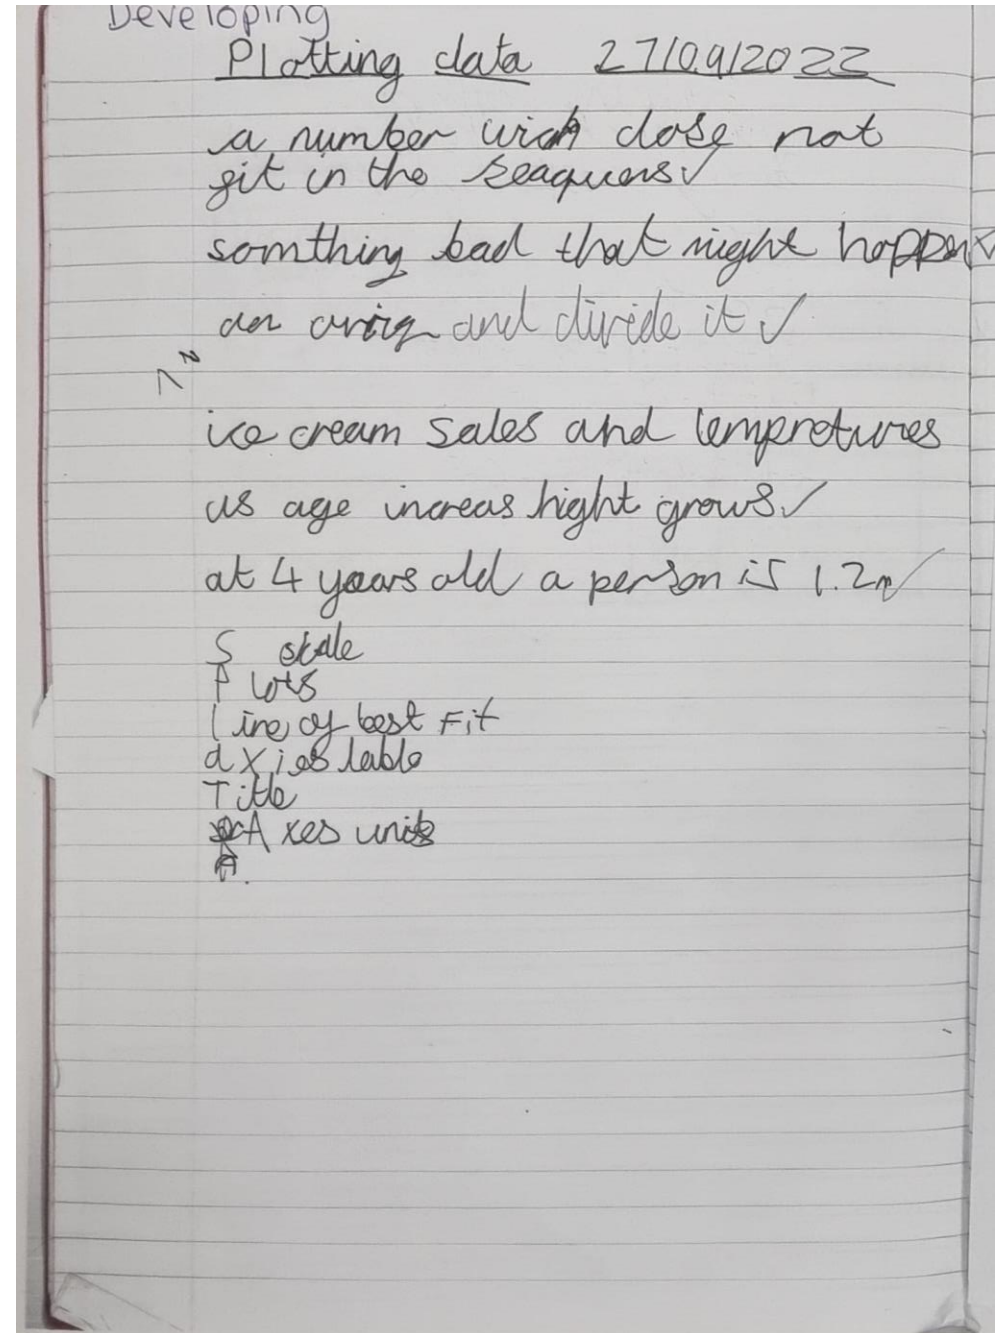 Developing
Plotting data 27/09/2022
a number wich dose not
fit in the seaquens ✓
somthing bad that might happen ✓
and divide it ✓
ice cream sales and tempretures
as age increas hight grows ✓
at 4 years old a person is 1.2m ✓
S skale
P lots
line of best Fit
axies lable
Title
Axes units
A.